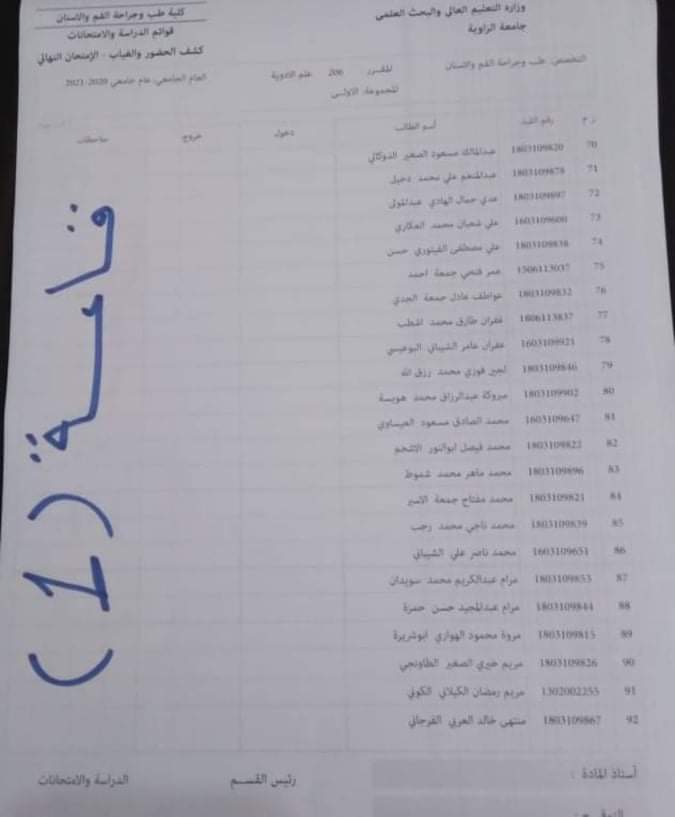 وزارة التعليم العالي والبحث العلمي
جامعة الزاوية
كلية طب وجراحة الفم والاسنان
قوائم الدراسة والامتحانات
كشف الحضور والغياب - الإمتحان النهائي
العام الجامعي: عام جامعي 2020-2021
التخصص: طب وجراحة الفم والاسنان
المقرر 206 علم الادوية
المجموعة: الاولى
ر.م رقم القيد أسم الطالب دخول خروج ملاحظات
70 1803109820 عبدالمالك مسعود الصغير الذوكالي
71 1803109878 عبدالمنعم علي محمد دخيل
72 1803109897 عدي جمال الهادي عبدالمولى
73 1603109600 علي شعبان محمد العكاري
74 1803109838 علي مصطفى الفيتوري حسن
75 1506113037 عمر فتحي جمعة احمد
76 1803109832 عواطف عادل جمعة الجدي
77 1806113837 غفران طارق محمد
78 1603109921 غفران عامر الشيباني البوعيسي
79 1803109846 لجين فوزي محمد رزق الله
80 1803109902 مبروكة عبدالرزاق محمد هويسة
81 1603109647 محمد الصادق مسعود العيساوي
82 1803109822 محمد فيصل ابوالنور
83 1803109896 محمد ماهر محمد شموط
84 1803109821 محمد مفتاح جمعة الاسير
85 1803109839 محمد ناجي محمد رجب
86 1603109651 محمد ناصر علي الشيباني
87 1803109853 مرام عبدالكريم محمد سويدان
88 1803109844 مرام عبدالمجيد حسن حمزة
89 1803109815 مروة محمود الهواري ابوشريرة
90 1803109826 مريم خيري الصغير الطاونجي
91 1302002255 مريم رمضان الكيلاني الكوني
92 1803109867 منتهى خالد العربي الفرجاني
قاعة (1)
أستاذ المادة :
رئيس القسم
الدراسة والامتحانات